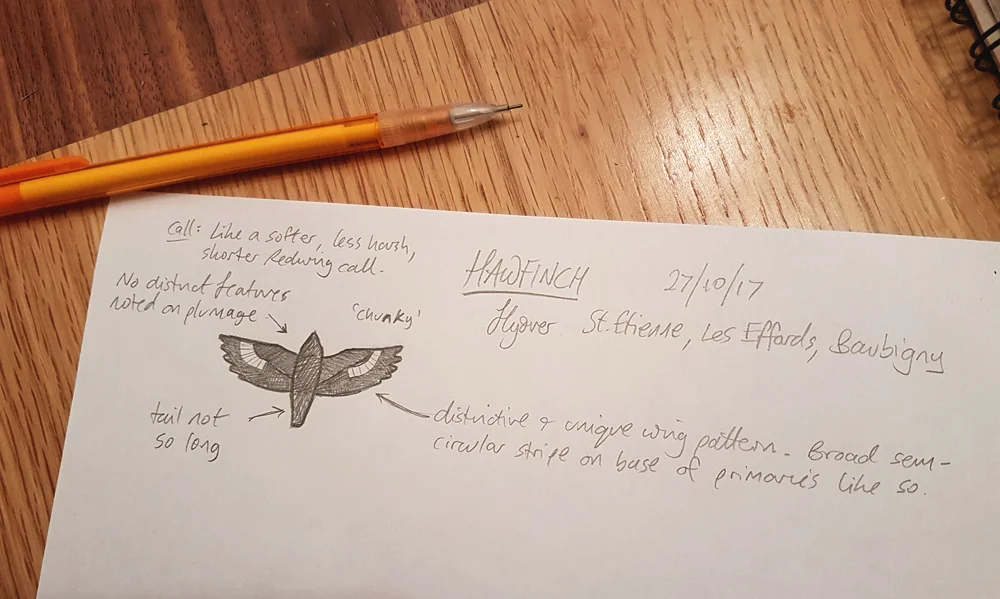 Call: Like a softer, less harsh,
shorter Redwing call.
HAWFINCH 27/10/17
Flyover St. Etienne, Les Effards, Baubigny
No distinct features
noted on plumage
'chunky'
tail not
so long
distinctive + unique wing pattern. Broad semi-
circular stripe on base of primaries like so.